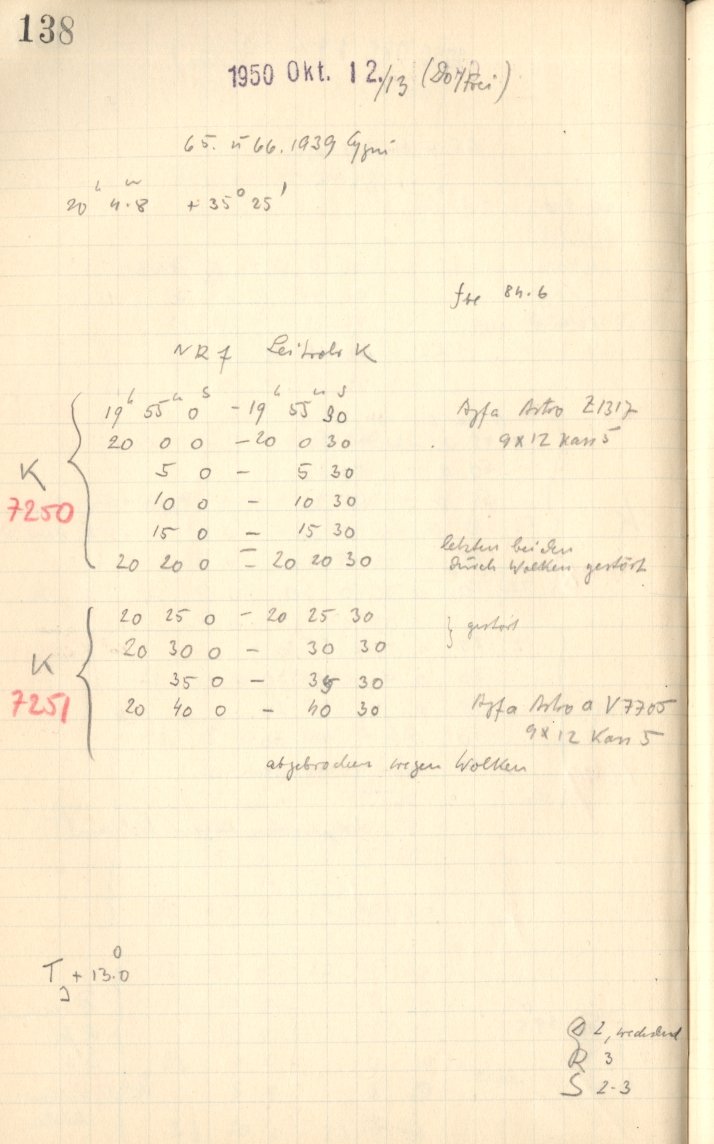 138
1950 Okt. 12./13 (Do/Frei)
65. u 66. 1939 Cygni
20h 4m.8 + 35° 25'
84.6
NR 7 Leitrohr K
19h 55m 0s - 19h 55m 30s Agfa Astro Z1317
20 0 0 - 20 0 30 9x12 Kass 5
5 0 - 5 30
K
10 0 - 10 30
7250
15 0 - 15 30
letzten beiden
20 20 0 - 20 20 30 durch Wolken gestört
20 25 0 - 20 25 30
} gestört
20 30 0 - 30 30
K
35 0 - 35 30
7251
20 40 0 - 40 30 Agfa Astro a V7705
9x12 Kass 5
abgebrochen wegen Wolken
TJ + 13.0°
2, wechselnd
R 3
S 2-3